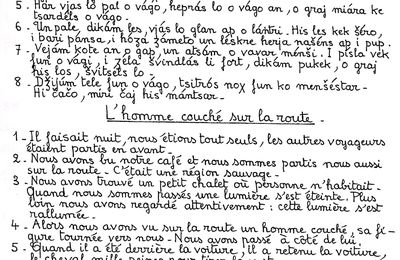 5 - Har vjas lo pal o vago, hepràs lo o vago an, o graj miàra ke
tsardèls o vago.
6 - Un pale, dikàm les, vjas lo glan ap o làntri. His les kek šéro,
i bari pànsa, i hóza zàmeto un lèskre herja našèns ap i pup.
7 - Vejàm kote an o gap, un atsàm o vavar mènši. I pisla vek
fun o vàgi, i zela švindlàs li fort, dikàm pukek, o graj
his los, švitsèls lo -
8 - Džijùm tele fun o vàgo, tsitrós nox fun ko menšéstar -
Hi čačo, miri čaj his màntsar -
L'homme couché sur la route -
1 - Il faisait nuit, nous étions tout seuls, les autres voyageurs
étaient partis en avant -
2 - Nous avons bu notre café et nous sommes partis nous aussi
sur la route - C'était une région sauvage -
3 - Nous avons trouvé un petit chalet où personne n'habitait -
Quand nous sommes passés une lumière s'est éteinte. Plus
loin nous avons regardé attentivement : cette lumière s'est
rallumée -
4 - Alors nous avons vu sur la route un homme couché, sa fi-
gure tournée vers nous - Nous avons passé à côté de lui.
5 - Quand il a été derrière la voiture, il a retenu la voiture,
le cheval